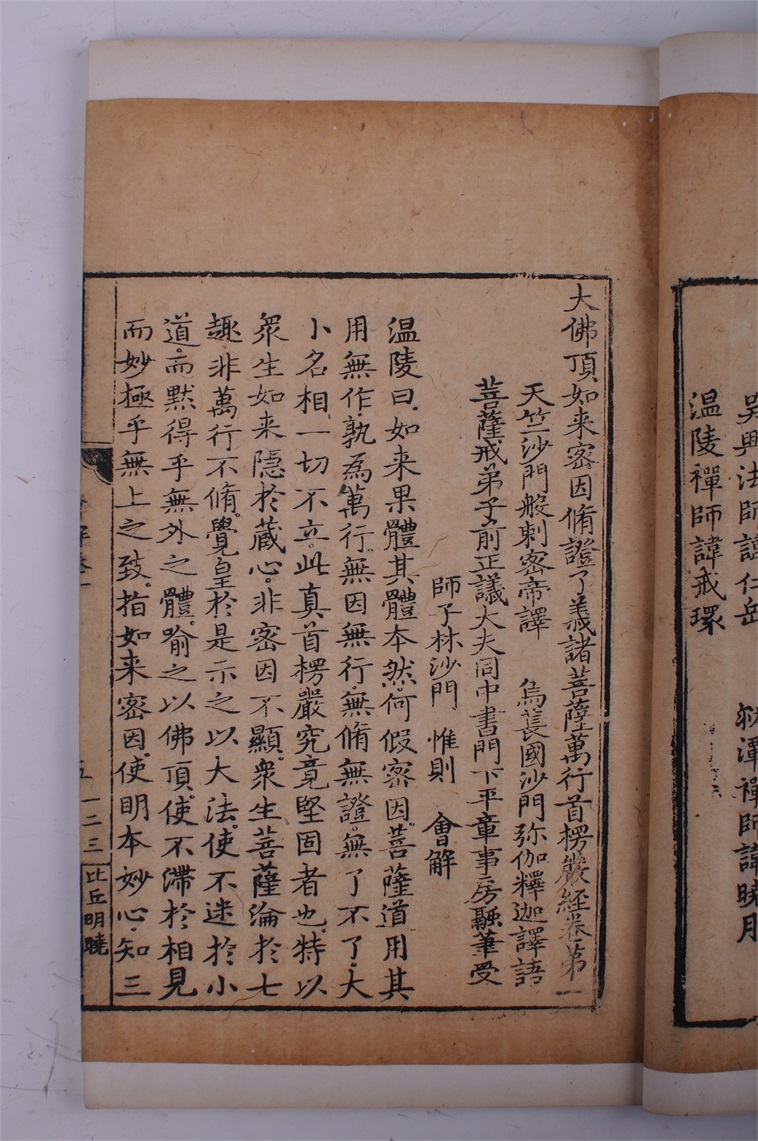 吳興法師諱仁岳　泐潭禪師諱曉月
温陵禪師諱戒環
大佛頂如来密因脩證了義諸菩薩萬行首楞嚴經卷第一
天竺沙門般刺密帝譯　烏萇國沙門弥伽釋迦譯語
菩薩戒弟子前正議大夫同中書門下平章事房融筆受
師子林沙門　惟則　會解
温陵曰如来果體其體本然何假密因菩薩道用其
用無作孰為萬行無因無行無脩無證無了不了大
小名相一切不立此真首楞嚴究竟堅固者也特以
衆生如来隱於藏心非密因不顯衆生菩薩淪於七
趣非萬行不脩覺皇於是示之以大法使不迷於小
道而默得乎無外之體喻之以佛頂使不滯於相見
而妙極乎無上之致指如来密因使明本妙心知三
會解卷一
五　一二三
比丘明曉